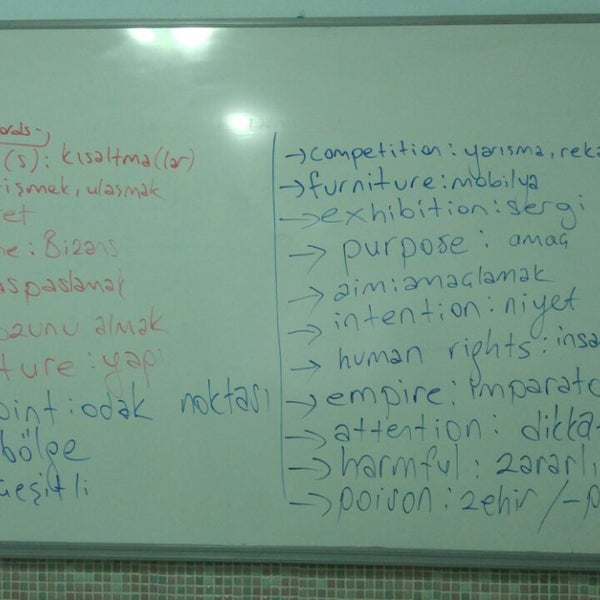 ords-
(s): kısaltma(lar)
işmek, ulaşmak
ret
ne: Bizans
aspaslamak
ozunu almak
ture: yapı
oint: odak noktası
bölge
çeşitli
→competition: yarışma, reka
→furniture: mobilya
→exhibition: sergi
→ purpose: amaç
→ aim: amaçlamak
→ intention: niyet
→ human rights: insa
→ empire: imparato
→ attention: dikka
→ harmful: zararlı
→ poison: zehir /-p